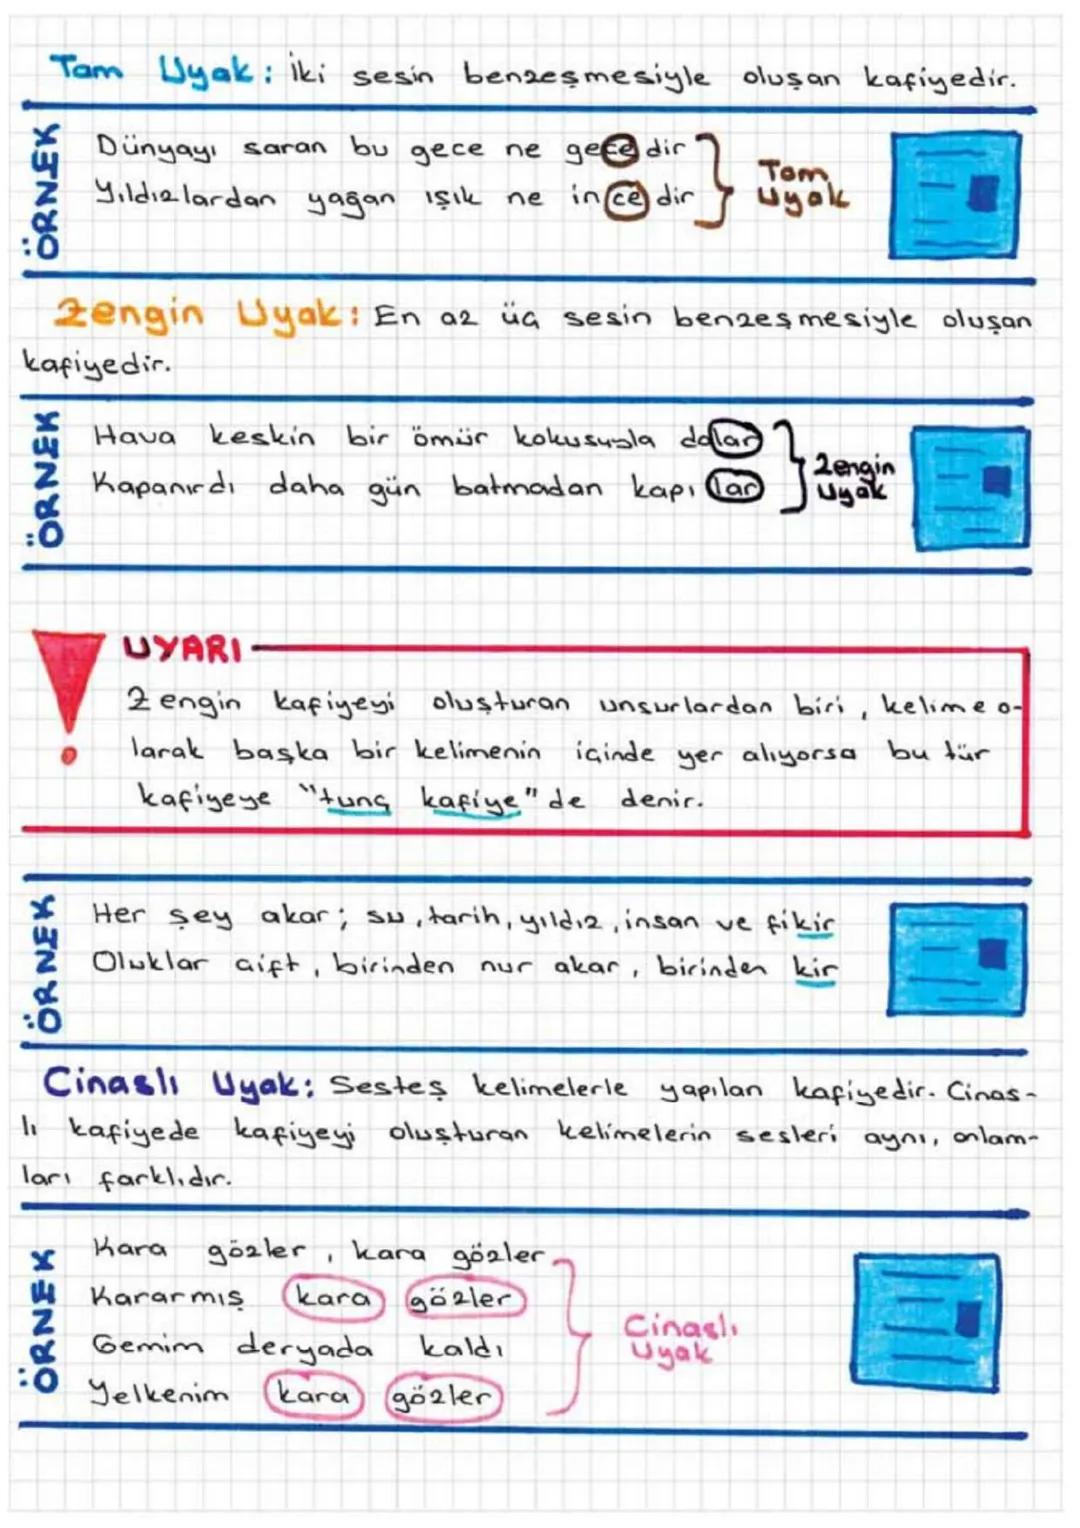 Tam Uyak: İki sesin benzeşmesiyle oluşan kafiyedir.
ÖRNEK
Dünyayı saran bu gece ne gecedir
Yıldızlardan yağan ışık ne incedir
Tam
Uyak
Zengin Uyak: En az üç sesin benzeşmesiyle oluşan
kafiyedir.
ÖRNEK
Hava keskin bir ömür kokusuyla dalar
Kapanırdı daha gün batmadan kapılar
Zengin
Uyak
UYARI
Zengin kafiyeyi oluşturan unsurlardan biri, kelime o-
larak başka bir kelimenin içinde yer alıyorsa bu tür
kafiyeye "tunç kafiye" de denir.
ÖRNEK
Her şey akar; su, tarih, yıldız, insan ve fikir
Oluklar çift, birinden nur akar, birinden kir
Cinaslı Uyak: Sesteş kelimelerle yapılan kafiyedir. Cinas-
lı kafiyede kafiyeyi oluşturan kelimelerin sesleri aynı, anlam-
ları farklıdır.
ÖRNEK
Kara gözler, kara gözler
Kararmış kara gözler
Gemim deryada kaldı
Yelkenim kara gözler
Cinaslı
Uyak